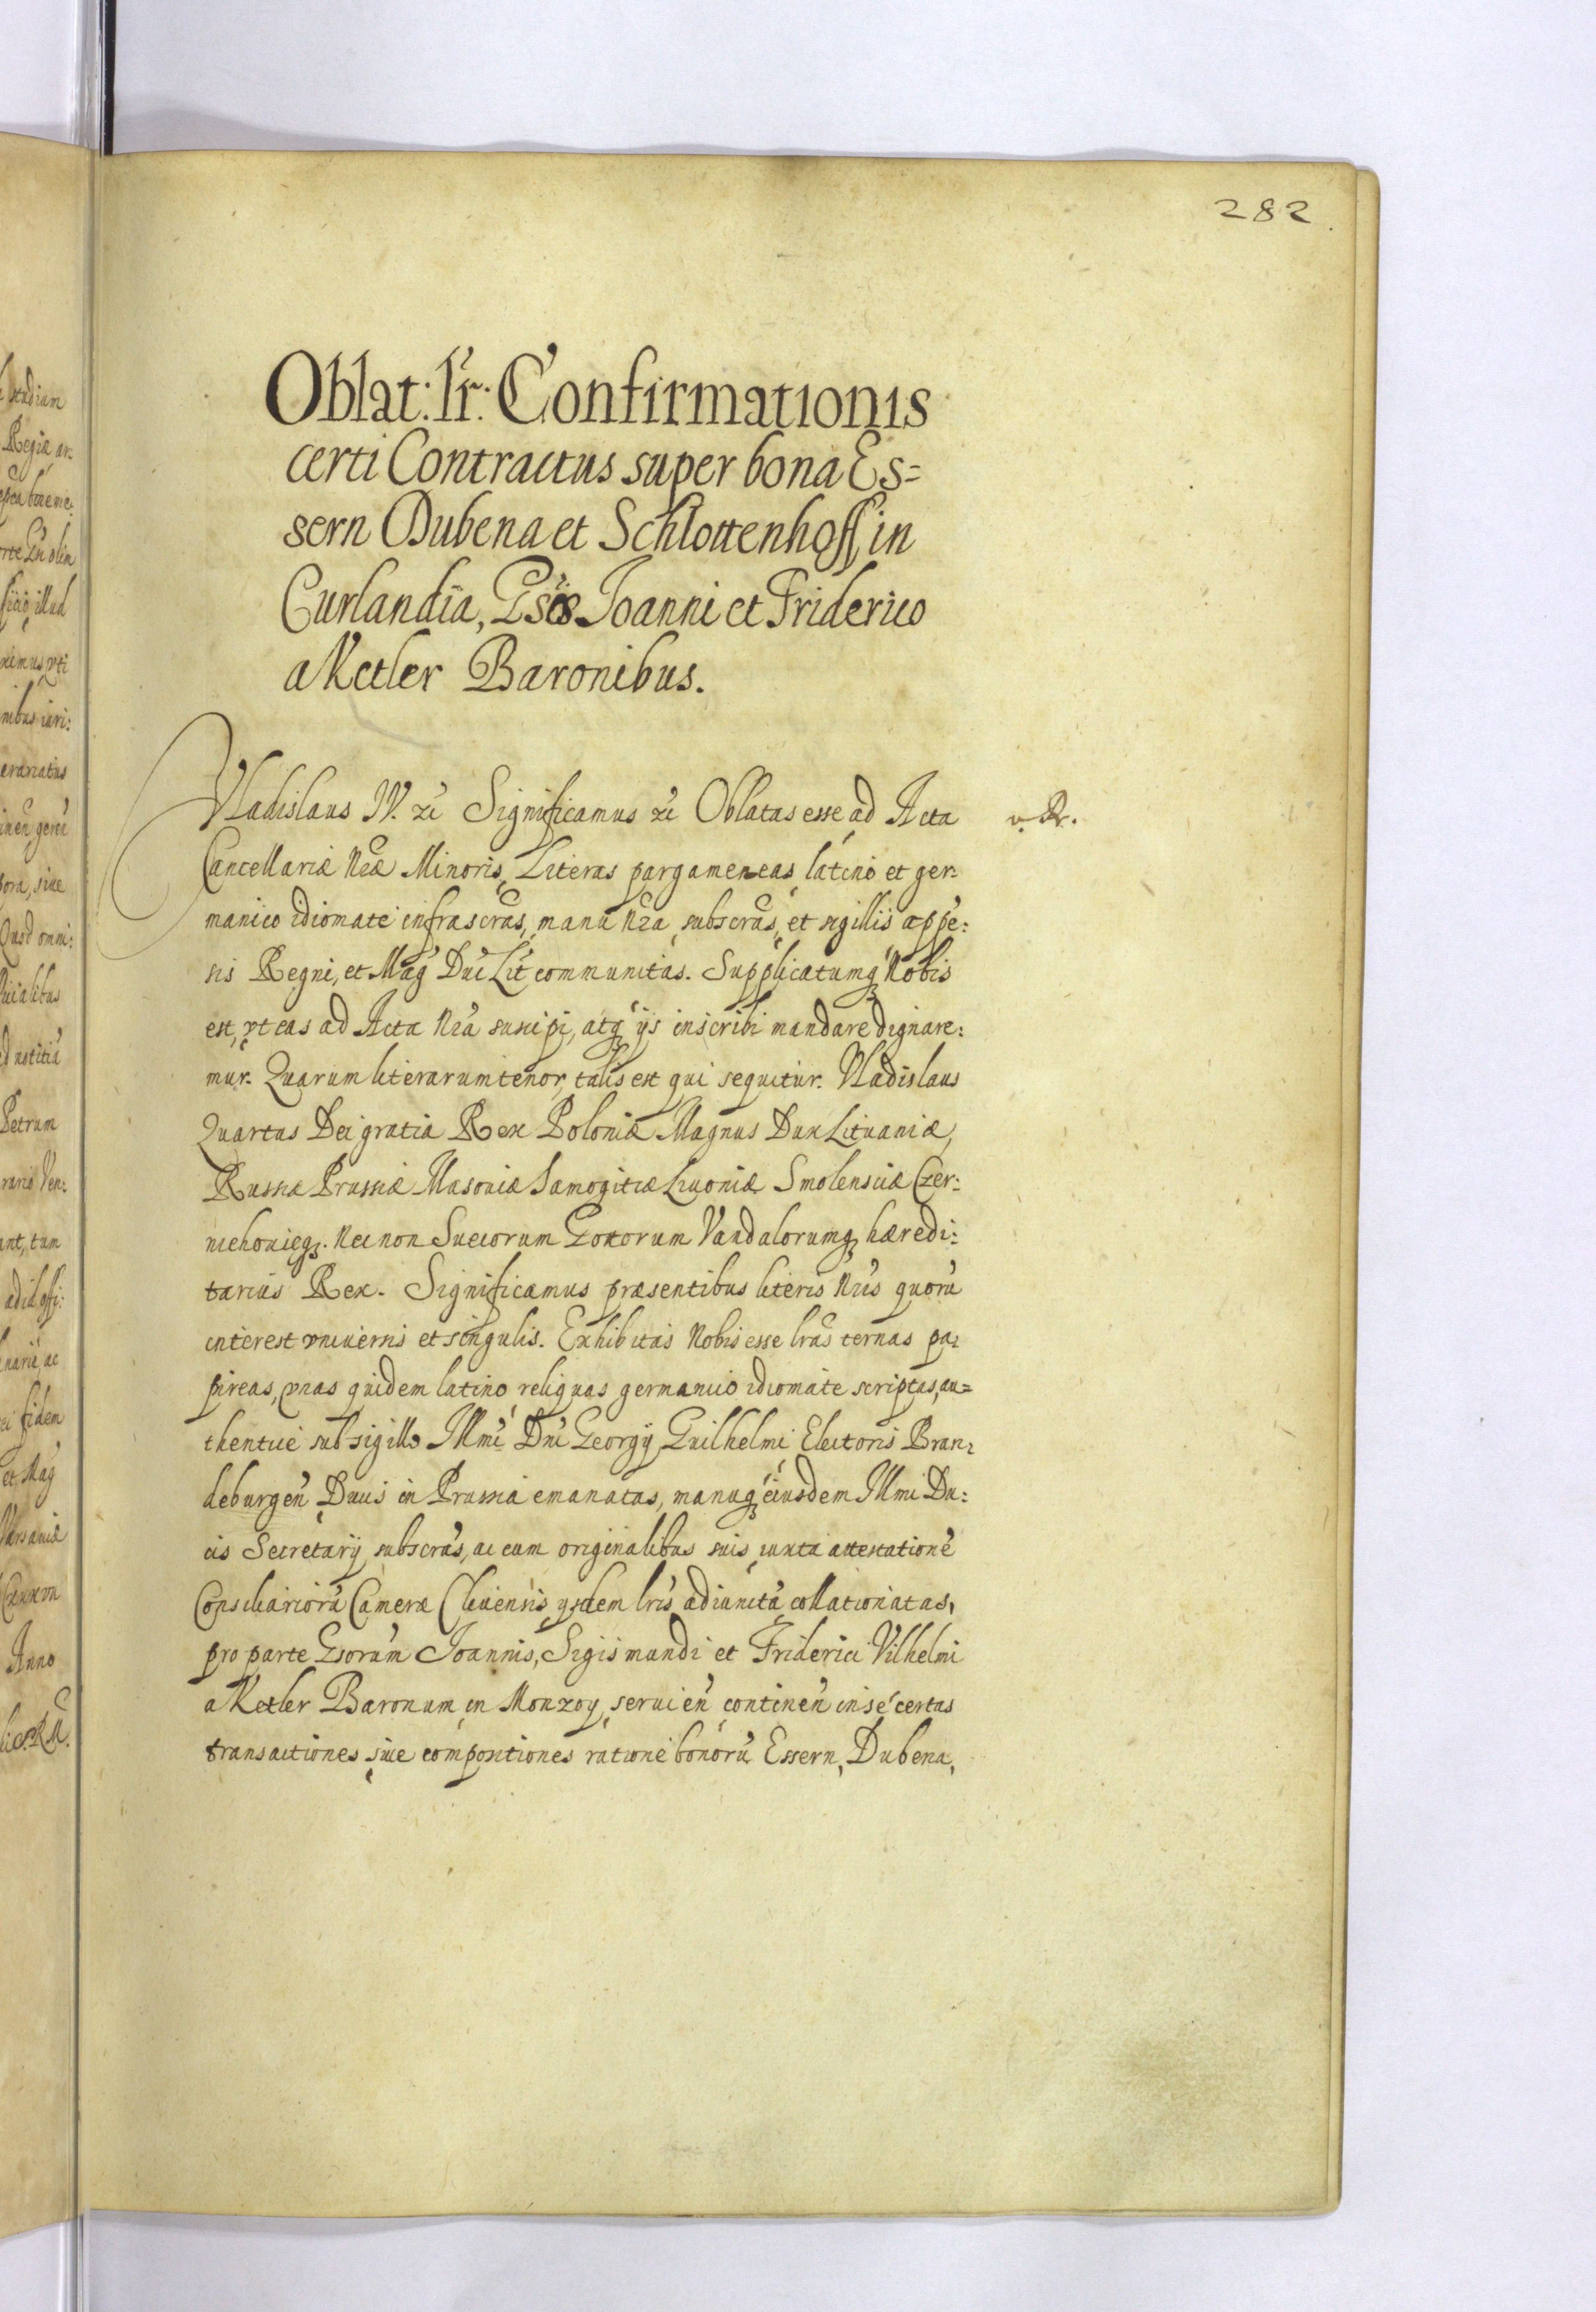 282
Oblat: lr: Confirmationis
certi Contractus super bona Es=
sern Dubena et Schlottenhoff in
Curlandia, Gsis Joanni et Friderico
a Ketler Baronibus.
Vladislaus IV. etc Significamus etc Oblatas esse ad Acta
Cancellariæ Nræ Minoris, Literas pargameneas latino et ger:
manico idiomate infrascras, manu Nra subscras, et sigillis appe:
sis Regni, et Mag Duc Lit communitas. Supplicatumq Nobis
est, vt eas ad Acta Nra suscipi, atq ijs inscribi mandare dignare:
mur. Quarum literarum tenor, talis est qui sequitur. Vladislaus
Quartus Dei gratia Rex Poloniæ Magnus Dux Lituaniæ,
Russiæ Prussiæ Masoviæ Samogitiæ Livoniæ Smolensciæ Czer:
niehoviæq. Nec non Suecorum Gotorum Vandalorumq hæredi:
tarius Rex. Significamus præsentibus literis Nris quorū
interest vniversis et singulis. Exhibitas Nobis esse lras ternas pa:
pireas, vnas quidem latino reliquas germanico idiomate scriptas, au=
thentice sub sigillo Illmi Dni Georgij Guilhelmi Electoris Bran:
deburgen Ducis in Prussia emanatas, manuq eiusdem Illmi Du:
cis Secretarij subscras, ac cum originalibus suis iuxta attestationē
Consiliariorū Cameræ Clivensis ysdem lris adiunctā collationatas,
pro parte Gsorum Joannis, Sigismundi et Friderici Vilhelmi
a Ketler Baronum in Monzoy, servien continen in se certas
transactiones sive compositiones ratione bonorū Essern, Dubena,